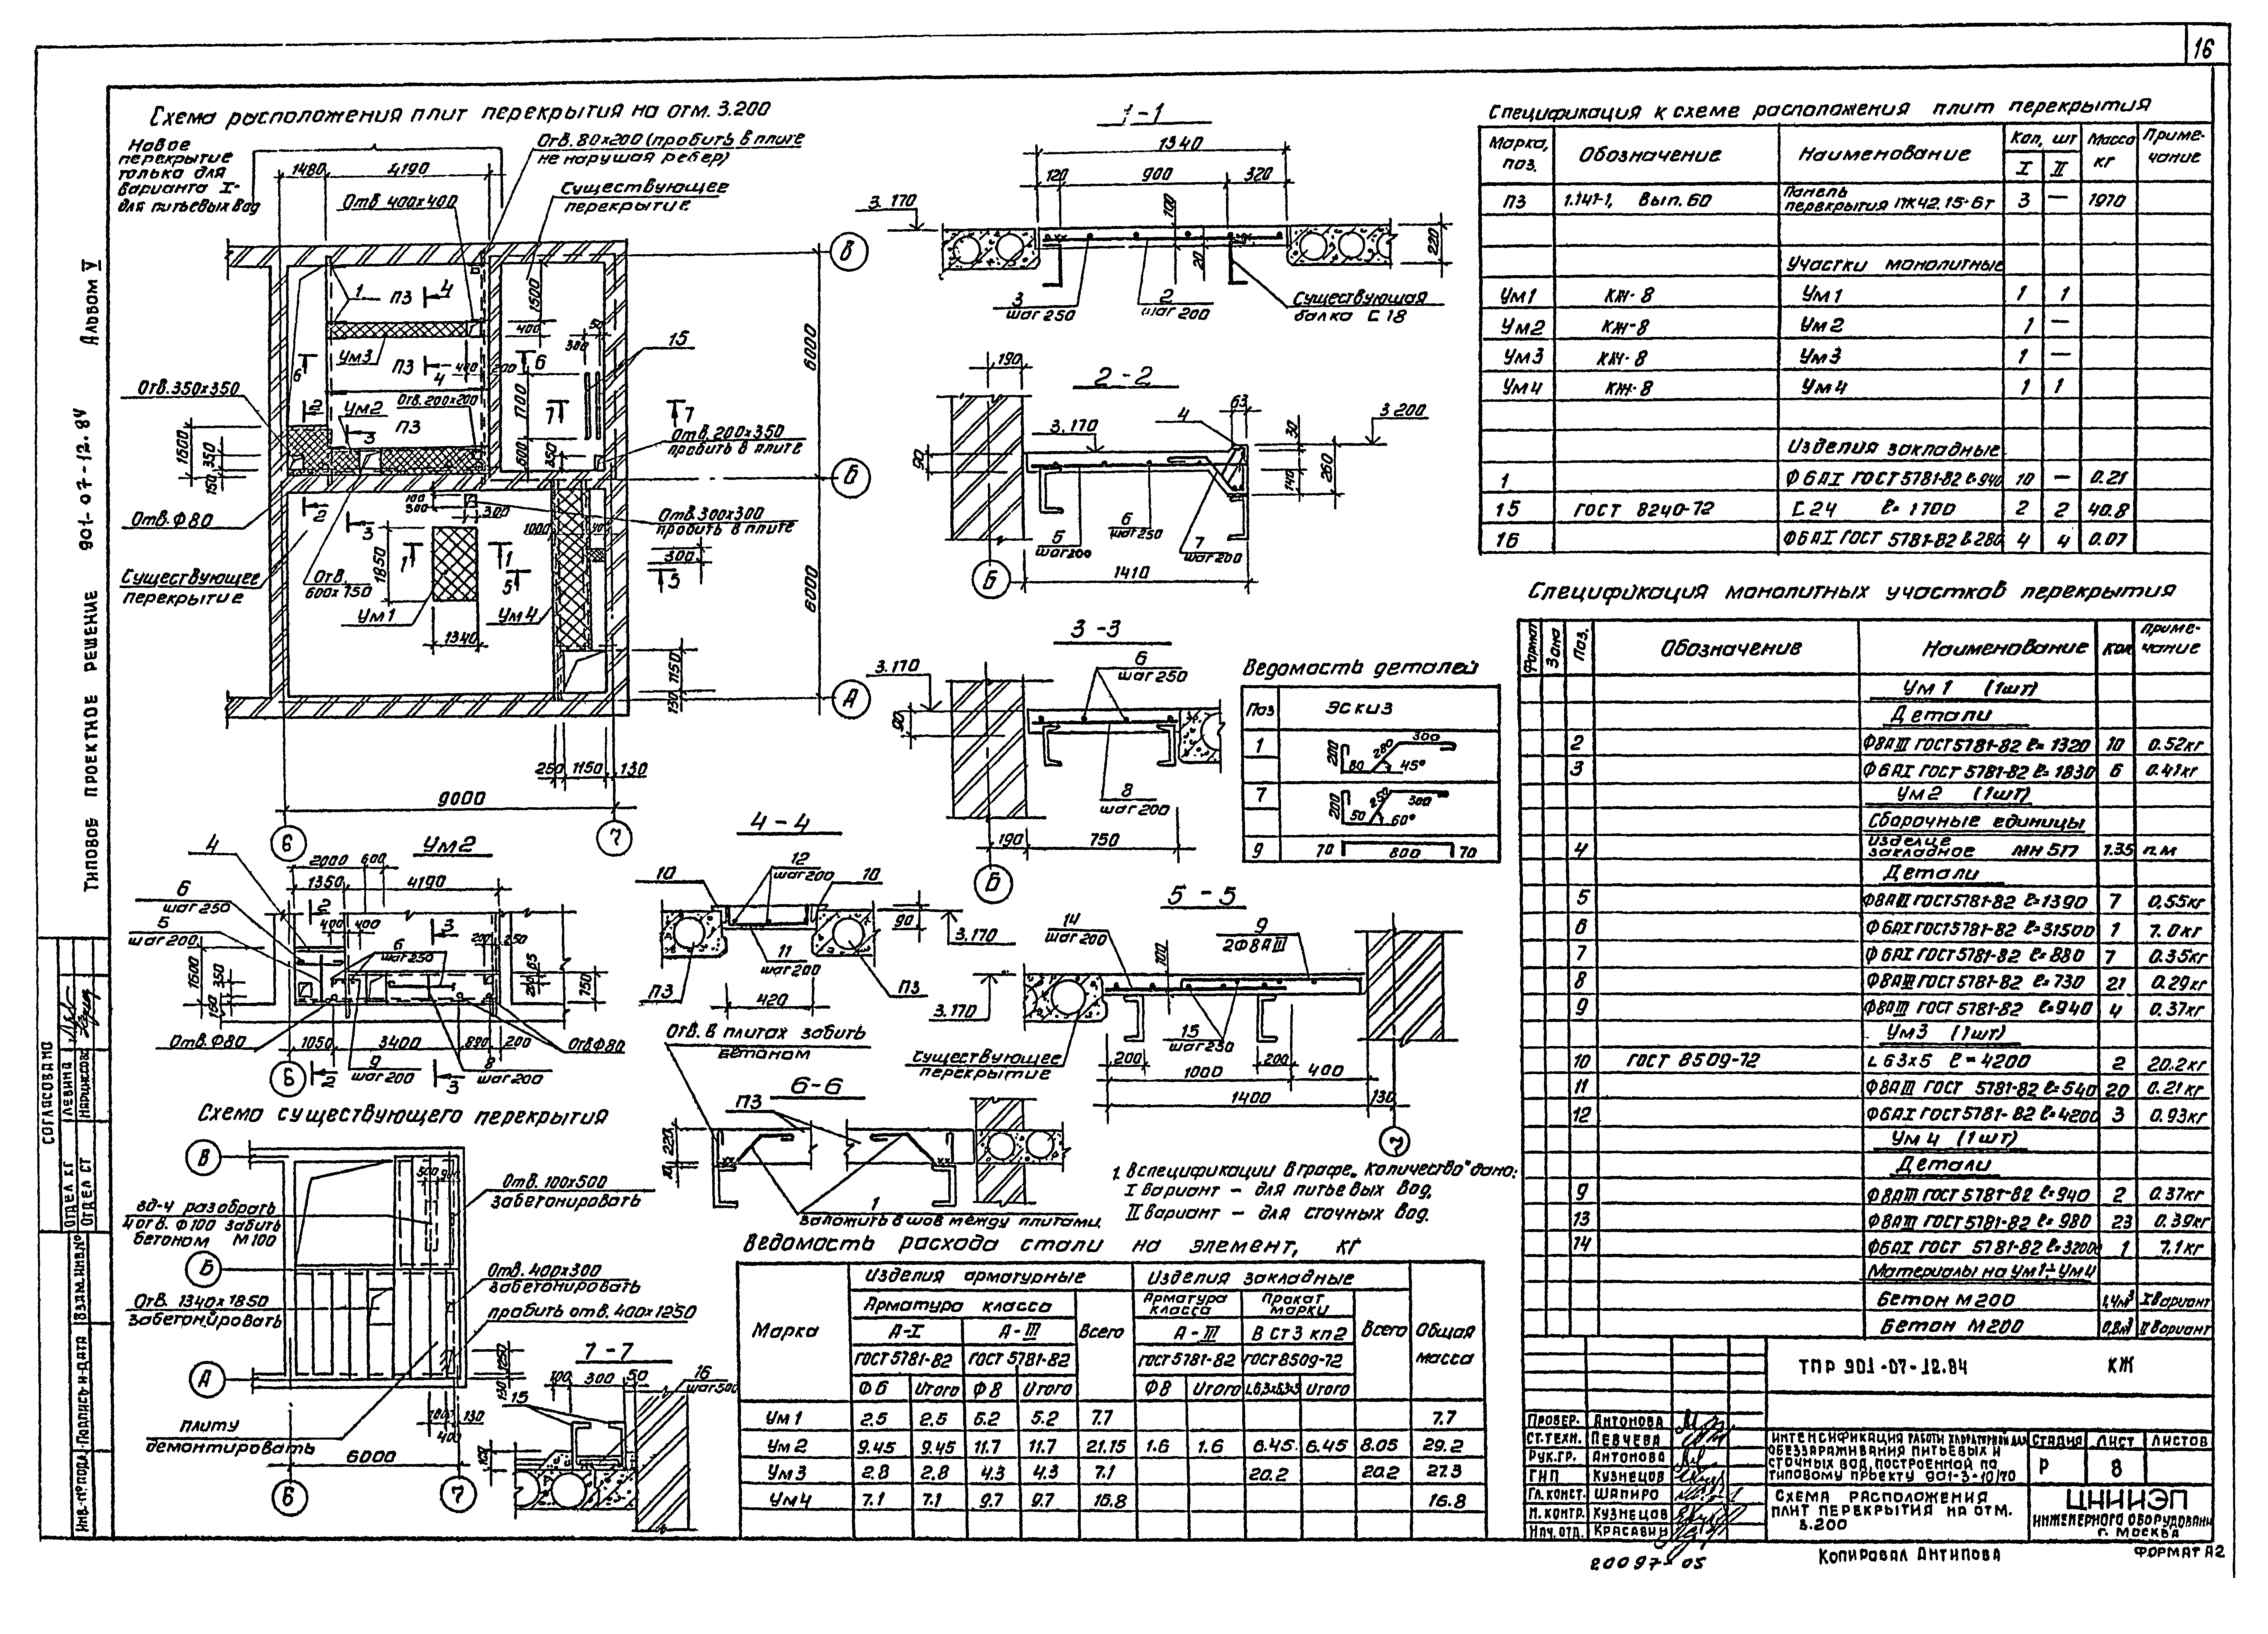 16
Альбом V
901-07-12.84
Типовое проектное решение
Согласовано
Отдел КГ
Отдел СТ
Взам.инв.№
Подпись и дата
Инв.№ подл.
Схема расположения плит перекрытия на отм. 3.200
Новое
перекрытие
только для
варианта I-
для питьевых вод
Отв. 80х200 (пробить в плите
не нарушая ребер)
Существующее
перекрытие
1480
4190
Отв. 400х400
В
1
П3
4
Ум3
П3
4
6
1500
400
300
50
6
15
1700
7
7
600
350
Отв. 200х350
пробить в плите
6000
Отв. 350х350
1600
350
150
2
Ум2
Отв. 200х200
3
П3
Б
Отв. Ф80
2
3
100
300
300
Отв. 300х300
пробить в плите
1000
400
300
1850
1
1
5
5
Существующее
перекрытие
Отв.
600х750
Ум1
Ум4
1340
6000
1150
130
А
250
1150
130
9000
6
7
1-1
1340
120
900
320
3.170
100
20
220
3
шаг 250
2
шаг 200
Существующая
балка С 18
2-2
190
3.170
4
63
3.200
30
90
140
260
5
шаг200
6
шаг250
7
шаг 200
Б
1410
3-3
3.170
6
шаг 250
90
8
шаг 200
190
750
Б
Ведомость деталей
Поз
Эскиз
1
200
80
280
300
45°
7
200
50
250
300
60°
9
70
800
70
Ум2
4
2000
600
1350
4190
6
шаг 250
5
шаг 200
2
400
400
3
6
шаг250
200
250
1600
350
150
65
200
750
Отв. Ф80
1050
3400
880
200
Отв Ф80
Б
2
9
шаг 200
3
8
шаг 200
4-4
10
12
шаг200
10
90
3.170
11
шаг 200
П3
П3
420
Отв. в плитах забить
бетоном
5-5
14
шаг 200
9
2Ф8АIII
100
3.170
15
шаг250
Существующее
перекрытие
200
200
1000
400
1400
130
7
6-6
П3
220
1
заложить в шов между плитами
1. В спецификации в графе „Количество" дано:
I вариант - для питьевых вод,
II вариант - для сточных вод.
Схема существующего перекрытия
В
500
Отв. 100х500
забетонировать
Бд-4 разобрать
4 отв. Ф100 забить
бетоном М100
Б
Отв. 400х300
забетонировать
Отв. 1340х1850
забетонировать
пробить отв. 400х1250
А
1250
130
плиту
демонтировать
130
400
6000
6
7
7-7
100
300
50
16
шаг500
15
Ведомость расхода стали на элемент, кг
Марка
Изделия арматурные
Изделия закладные
Общая
масса
Арматура класса
Всего
Арматура
класса
Прокат
марки
Всего
А-I
А-III
А-III
В Ст3 кп2
ГОСТ5781-82
ГОСТ 5781-82
ГОСТ5781-82
ГОСТ8509-72
Ф6
Итого
Ф8
Итого
Ф8
Итого
Итого
Ум1 2.5 2.5 5.2 5.2 7.7 7.7
Ум2 9.45 9.45 11.7 11.7 21.15 1.6 1.6 6.45 6.45 8.05 29.2
Ум3 2.8 2.8 4.3 4.3 7.1 20.2 20.2 27.3
Ум4 7.1 7.1 9.7 9.7 16.8 16.8
Спецификация к схеме расположения плит перекрытия
Марка,
поз.
Обозначение
Наименование
Кол, шт
I
II
Масса
кг
Приме-
чание
П3 1.141-1, Вып. 60 Панель
перекрытия ПК42.15-6т 3 — 1970
Участки монолитные
Ум1 КЖ-8 Ум1 1 1
Ум2 КЖ-8 Ум2 1 —
Ум3 КЖ-8 Ум3 1 —
Ум4 КЖ-8 Ум4 1 1
Изделия закладные
1 Ф6АI ГОСТ5781-82 ℓ=940 10 — 0.21
15 ГОСТ 8240-72 С24 ℓ=1700 2 2 40.8
16 Ф6АI ГОСТ 5781-82 ℓ=280 4 4 0.07
Спецификация монолитных участков перекрытия
Формат
Зона
Поз.
Обозначение
Наименование
Кол
Приме-
чание
Ум 1 (1шт)
Детали
2 Ф8АIII ГОСТ5781-82 ℓ=1320 10 0.52кг
3 Ф6АI ГОСТ 5781-82 ℓ=1830 6 0.41кг
Ум2 (1шт)
Сборочные единицы
4 Изделие
закладное МН 517 1.35 п.м
Детали
5 Ф8АIII ГОСТ5781-82 ℓ=1390 7 0.55кг
6 Ф6АI ГОСТ5781-82 ℓ=31500 1 7.0кг
7 Ф6АI ГОСТ5781-82 ℓ=880 7 0.35кг
8 Ф8АIII ГОСТ5781-82 ℓ=730 21 0.29кг
9 Ф8АIII ГОСТ5781-82 ℓ=940 4 0.37кг
Ум3 (1шт)
10 ГОСТ 8509-72 L 63х5 ℓ=4200 2 20.2кг
11 Ф8АIII ГОСТ 5781-82 ℓ=540 20 0.21кг
12 Ф6АI ГОСТ5781-82 ℓ=4200 3 0.93кг
Ум 4 (1шт)
Детали
9 Ф8АIII ГОСТ5781-82 ℓ=940 2 0.37кг
13 Ф8АIII ГОСТ5781-82 ℓ=980 23 0.39кг
14 Ф6АI ГОСТ 5781-82 ℓ=32000 1 7.1кг
Материалы на Ум1÷Ум4
Бетон М200 1,4м³ I вариант
Бетон М200 0,8м³ II вариант
ТПР 901-07-12.84 КЖ
Провер. Антонова
Ст.техн. Певчева
Рук.гр. Антонова
ГИП Кузнецов
Гл.конст. Шапиро
Н.контр. Кузнецов
Нач.отд. Красавин
Интенсификация работы хлораторной для
обеззараживания питьевых и
сточных вод, построенной по
типовому проекту 901-3-10/70
Стадия
Лист
Листов
Р
8
Схема расположения
плит перекрытия на отм.
3.200
ЦНИИЭП
инженерного оборудования
г. Москва
20097-05
Копировал Антипова
Формат А2